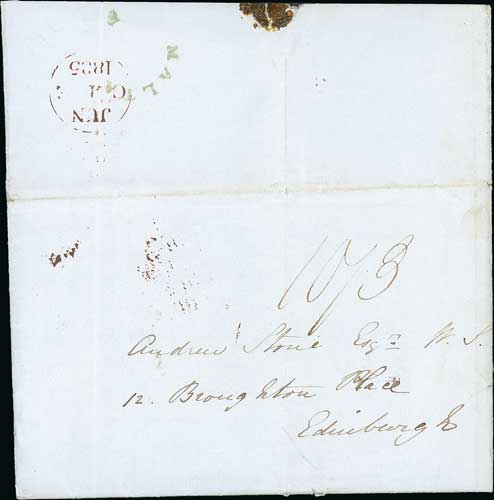 JUN
C 4
1835
10/8
Andrew Stone Esqr. W. S.
12. Broughton Place
Edinburgh